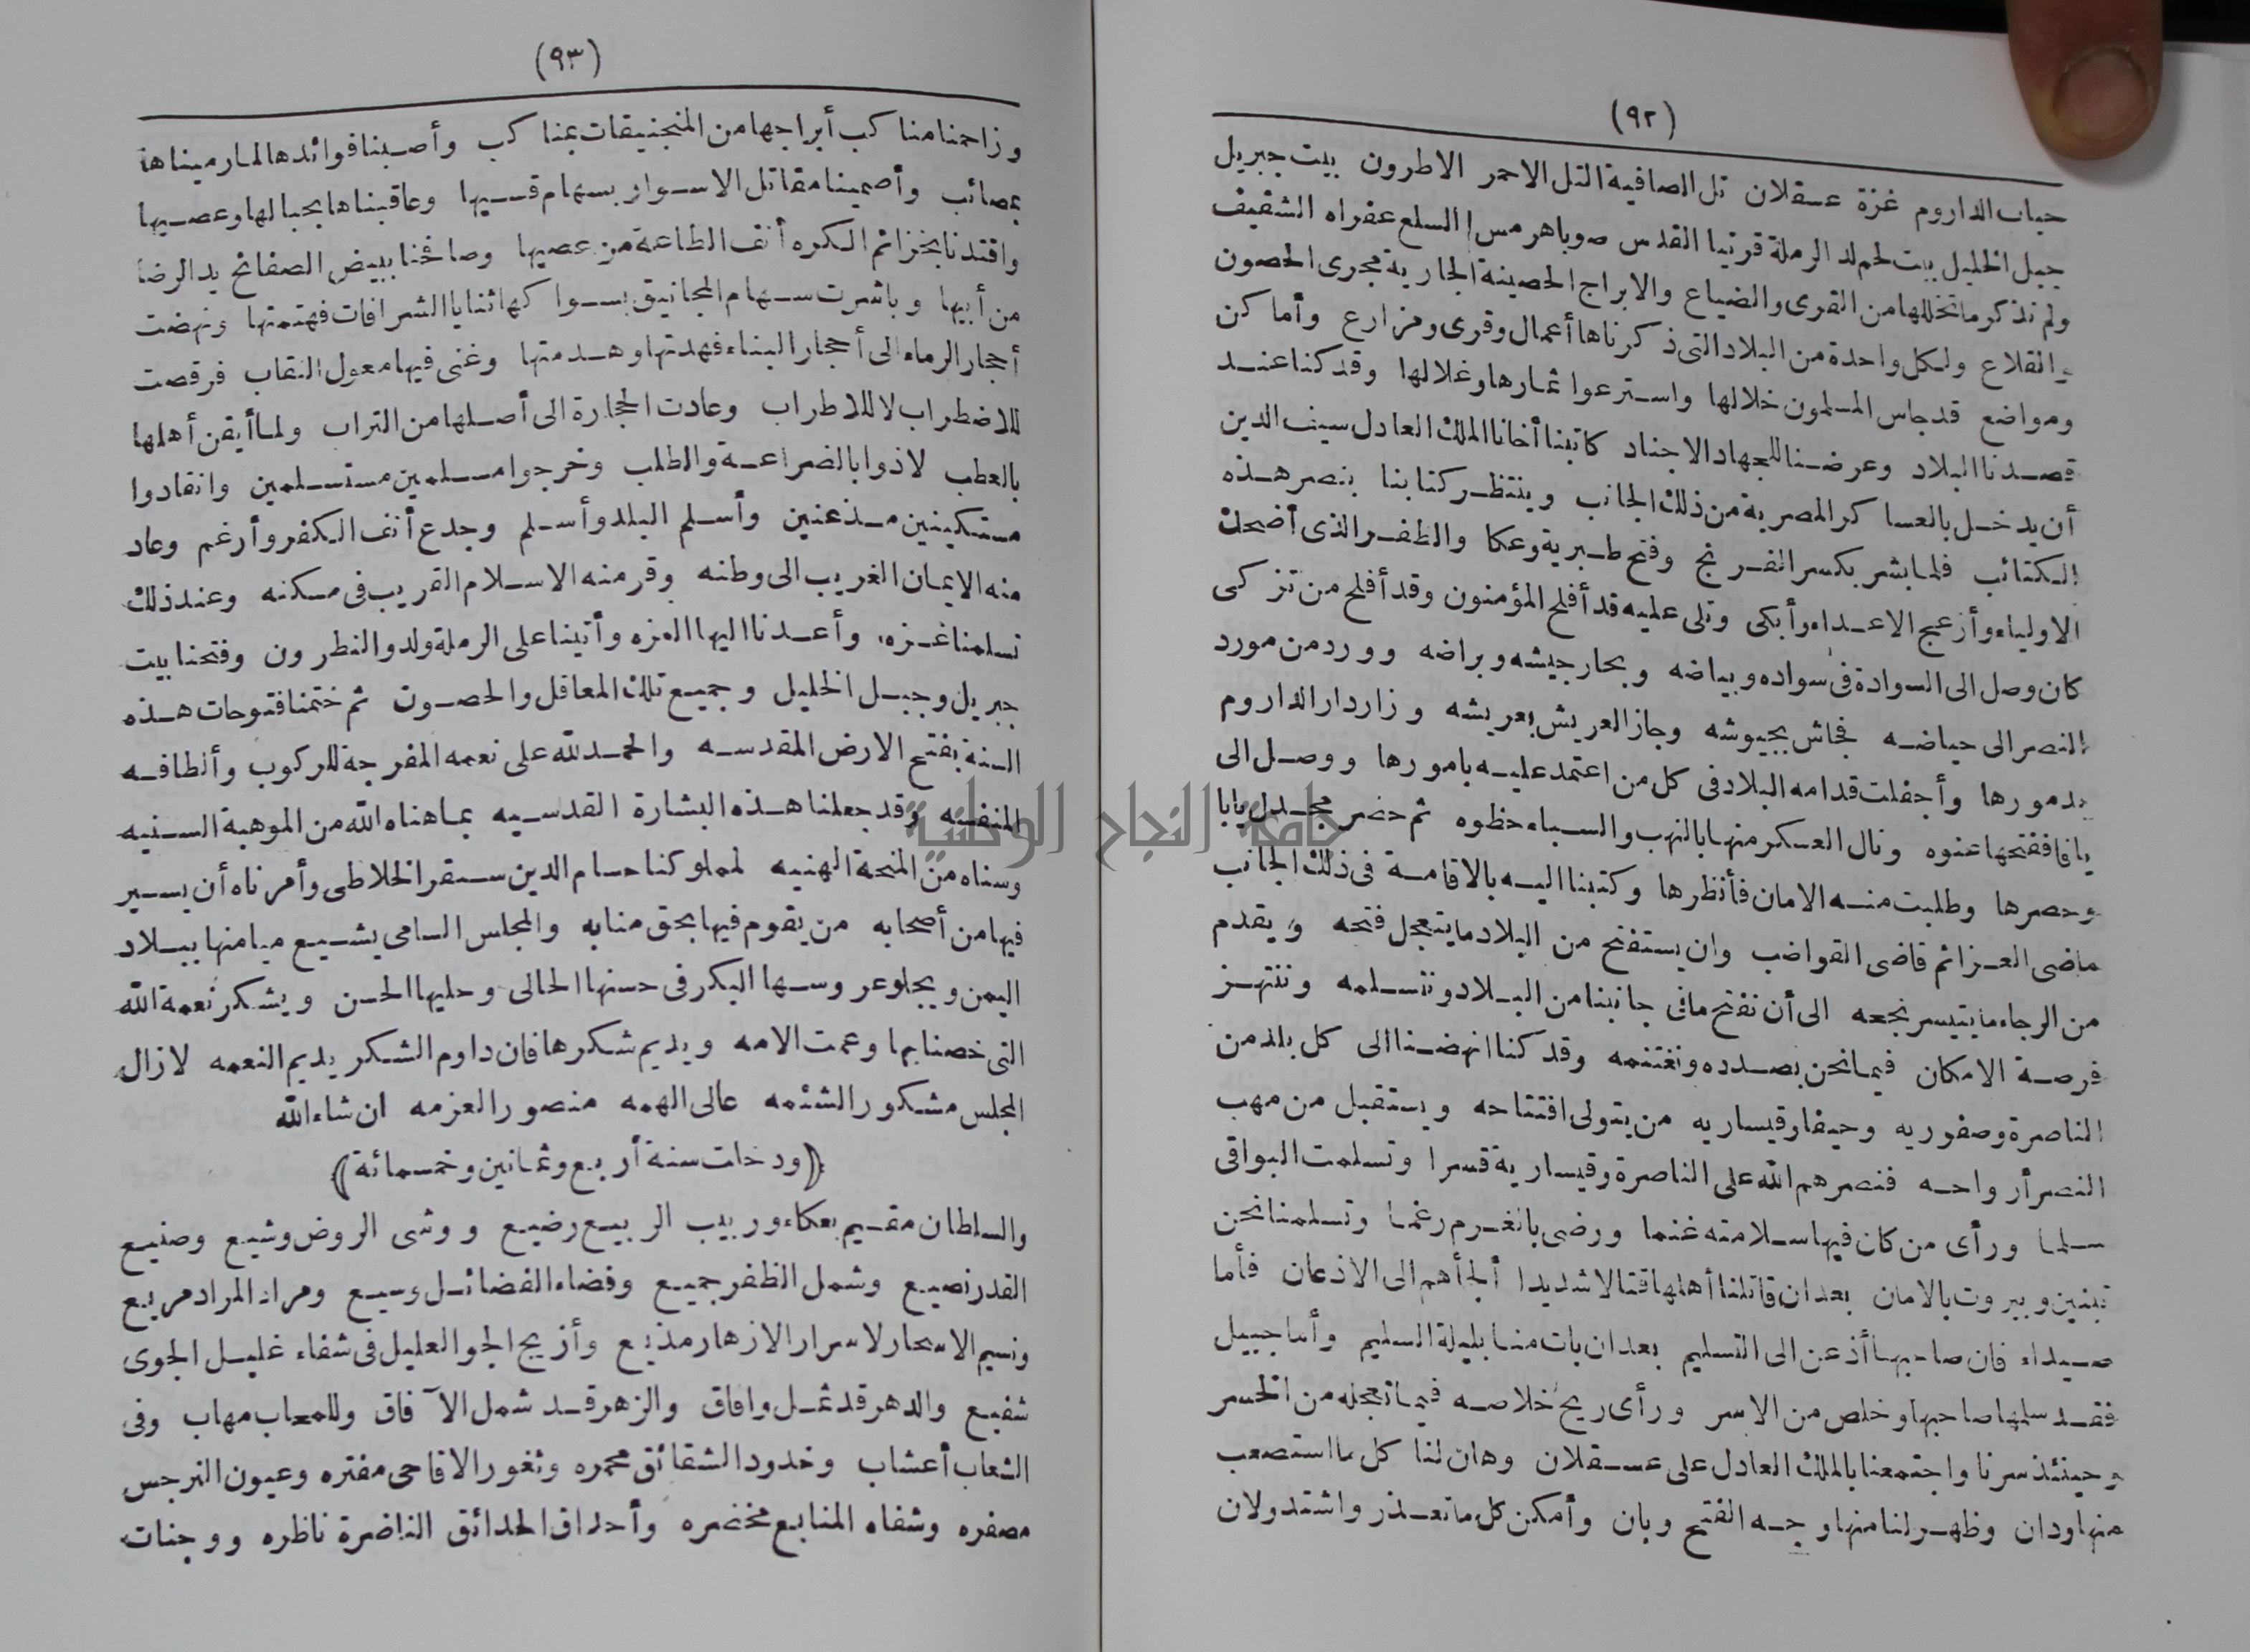 (٩٢)
جباب الداروم غزة عسقلان تل الصافية التل الاحمر الاطرون بيت جبريل
جبل الخليل بيت لحم لد الرملة قرتيا القدس صوبا هرمس السلع عفراه الشقيف
ولم نذكر ما تخللها من القرى والضياع والابراج الحصينة الجارية مجرى الحصون
والقلاع ولكل واحدة من البلاد التى ذكرناها أعمال وقرى ومزارع وأماكن
ومواضع قد جاس المسلمون خلالها واسترعوا ثمارها وغلالها وقد كنا عند
قصدنا البلاد وعرضنا للجهاد الاجناد كاتبنا أخانا الملك العادل سيف الدين
أن يدخل بالعساكر المصرية من ذلك الجانب وينتظر كتابنا بنصر هذه
الكتائب فلما بشر بكسر الفرنج وفتح طبرية وعكا والظفر الذى أضحك
الاولياء وأزعج الاعداء وأبكى وتلى عليه قد أفلح المؤمنون وقد أفلح من تزكى
كان وصل الى السوادة فى سواده وبياضه وبحار جيشه وبراضه وورد من مورد
النصر الى حياضه فجاش بجيوشه وجاز العريش بعريشه وزار دار الداروم
بدمورها وأجفلت قدامه البلاد فى كل من اعتمد عليه بامورها ووصل الى
يافا ففتحها عنوه ونال العسكر منها بالنهب والسباء حظوه ثم حضر مجدل يابا
وحصرها وطلبت منه الامان فأنظرها وكتبنا اليه بالاقامة فى ذلك الجانب
ماضى العزائم قاضى القواضب وان يستفتح من البلاد ما يتعجل فتحه ويقدم
من الرجاء ما يتيسر نجحه الى أن نفتح ما فى جانبنا من البلاد ونتسلمه وننتهز
فرصة الامكان فيما نحن بصدده ونغتنمه وقد كنا انهضنا الى كل بلد من
الناصرة وصفوريه وحيفا وقيساريه من يتولى افتتاحه ويستقبل من مهب
النصر أرواحه فنصرهم الله على الناصرة وقيسارية قسرا وتسلمت البواقى
سلما ورأى من كان فيها سلامته غنما ورضى بالغرم رغما وتسلمنا نحن
تبنين وبيروت بالامان بعد ان قاتلنا أهلها قتالا شديدا ألجأهم الى الاذعان فأما
صيداء فان صاحبها أذعن الى التسليم بعد ان بات منا بليلة السليم وأما جبيل
فقد سلمها صاحبها وخلص من الاسر ورأى ربح خلاصه فيما تعجله من الخسر
وحينئذ سرنا واجتمعنا بالملك العادل على عسقلان وهان لنا كل ما استصعب
منها ودان وظهر لنا منها وجه الفتح وبان وأمكن كل ما تعذر واشتد ولان
(٩٣)
وزاحمنا مناكب أبراجها من المنجنيقات بمناكب وأصبنا فوائدها لما رميناها
بمصائب وأصمينا مقاتل الاسوار بسهام قسيها وعاقبناها بحبالها وعصيها
واقتدنا بخزائم الكره أنف الطاعة من عصيها وصافحنا ببيض الصفائح يد الرضا
من أبيها وباشرت سهام المجانيق بسواكها ثنايا الشرافات فهتمتها ونهضت
أحجار الرماه الى أحجار البناء فهدتها وهدمتها وغنى فيها معول النقاب فرقصت
للاضطراب لا للاطراب وعادت الحجارة الى أصلها من التراب ولما أيقن أهلها
بالعطب لاذوا بالضراعة والطلب وخرجوا مسلمين مستسلمين وانقادوا
مستكينين مذعنين وأسلم البلد وأسلم وجدع أنف الكفر وأرغم وعاد
منه الايمان الغريب الى وطنه وقر منه الاسلام القريب فى مسكنه وعند ذلك
تسلمنا غزه وأعدنا اليها العزه وأتينا على الرملة ولد والنطرون وفتحنا بيت
جبريل وجبل الخليل وجميع تلك المعاقل والحصون ثم ختمنا فتوحات هذه
السنة بفتح الارض المقدسه والحمد لله على نعمه المفرجة للكروب وألطافه
المنفسه وقد جعلنا هذه البشارة القدسيه بما هناه الله من الموهبة السنيه
وسناه من المنحة الهنيه لمملوكنا حسام الدين سنقر الخلاطى وأمرناه أن يسير
فيها من أصحابه من يقوم فيها بحق منابه والمجلس السامى يشيع ميامنها ببلاد
اليمن ويجلو عروسها البكر فى حسنها الحالى وحليها الحسن ويشكر نعمة الله
التى خصنا بها وعمت الامه ويديم شكرها فان داوم الشكر يديم النعمه لازال
المجلس مشكور الشئمه عالى الهمه منصور العزمه ان شاء الله
(ودخلت سنة أربع وثمانين وخمسمائة)
والسلطان مقيم بعكاء وربيب الربيع رضيع ووشى الروض وشيع وصنيع
القدر نصيع وشمل الظفر جميع وفضاء الفضائل وسيع ومراد المراد مريع
ونسيم الاسحار لاسرار الازهار مذيع وأزيح الجو العليل فى شفاء غليل الجوى
شفيع والدهر قد ثمل وافاق والزهر قد شمل الآفاق وللمحاب مهاب وفى
الشعاب أعشاب وخدود الشقائق محمره وثغور الاقاحى مفتره وعيون النرجس
مصفره وشفاه المنابع مخضره وأحداق الحدائق الناضرة ناظره ووجنات
جامعة النجاح الوطنية